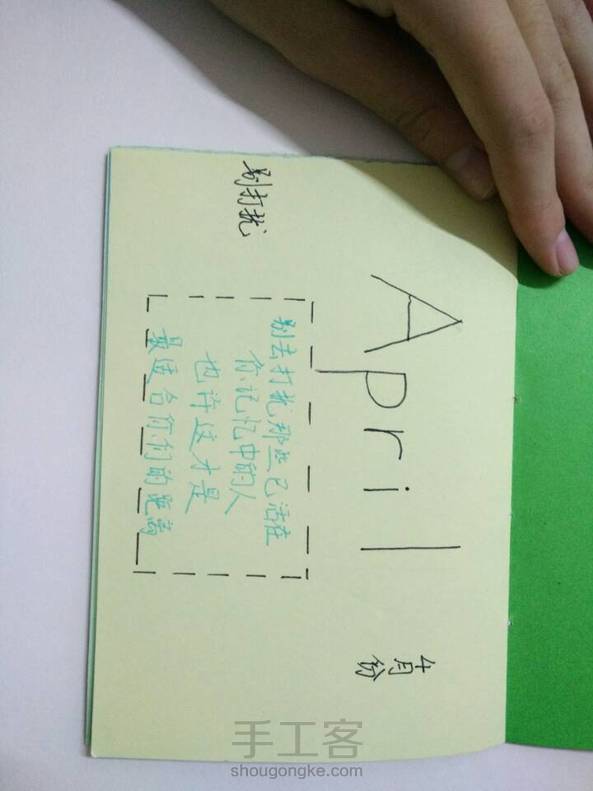 April
4月份
别打扰
别去打扰那些已活在
你记忆中的人
也许这才是
最适合你们的距离
手工客
shougongke.com